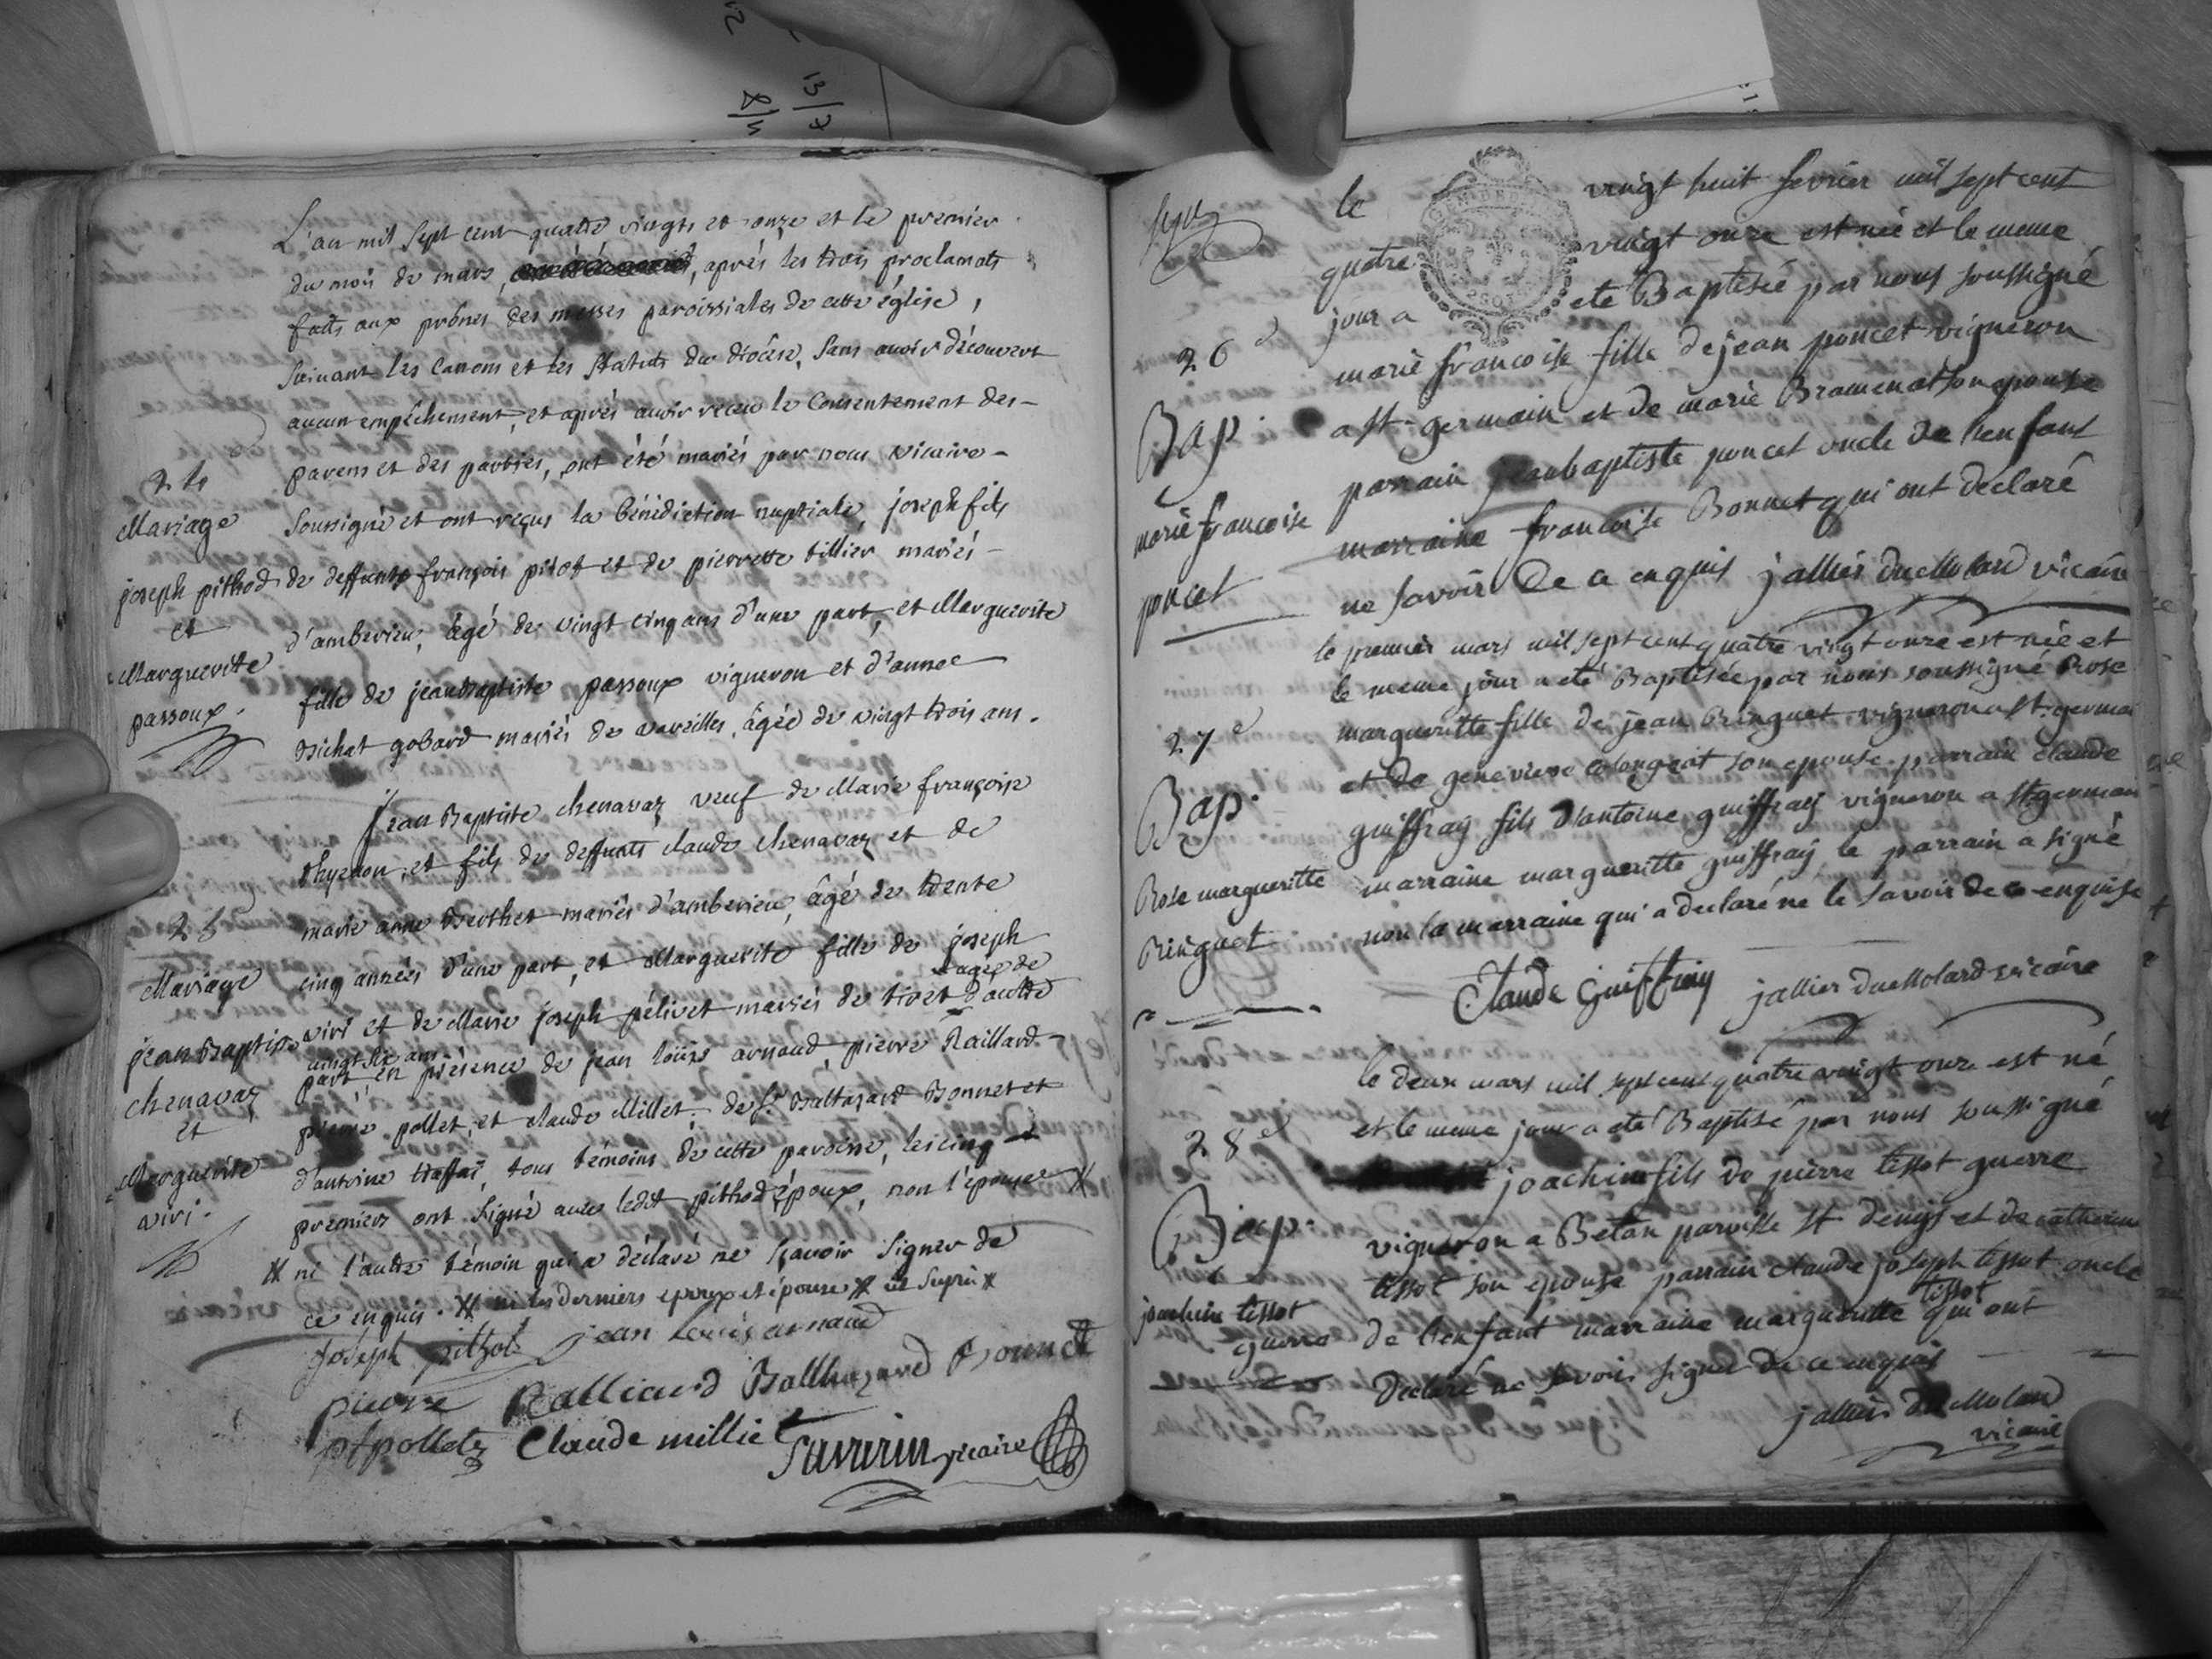 L'an mil sept cent quatre vingts et onze et le premier
du mois de mars, après les trois proclamats
faits aux prônes des messes paroissiales de cette église,
suivant les canons et les statuts du diocèse, sans avoir découvert
aucun empêchement, et après avoir receu le consentement des-
parens et des parties, ont été mariés par nous vicaire-
soussigné et ont reçus la bénédiction nuptiale, joseph fils
de deffunts françois pitot et de pierrette tillier mariés-
d'amberieu, âgé de vingt cinq ans d'une part, et Marguerite
fille de jean baptiste passoux vigneron et d'anne
Bichat gobard mariés de vareilles, âgée de vingt trois ans.
24
Mariage
joseph pithod
et
Marguerite
passoux.
Jean Baptiste chenavaz veuf de Marie françoise
et fils de deffunts claude chenavaz et de
marie anne Berthet mariés d'amberieu, âgé de trente
cinq années d'une part, et Marguerite fille de joseph
agée de
viri et de Marie joseph pélivet mariés de tiret d'autre
vingt six ans
part en présence de jean loüis arnaud, pierre Raillard-
pierre pollet, et claude Millet, de sr Baltazard Bonnet et
d'antoine traffay, tous témoins de cette paroisse, les cinq
premiers ont signé avec ledit pithod époux, non l'épouse #
# ni l'autre témoin qui a déclaré ne sçavoir signer de
ce enquis. # ni les derniers époux et épouse #
25
Mariage
jean Baptiste
chenavaz
et
Marguerite
viri.
joseph pithod jean louis arnaud
pierre Ralliard Balthazard Bonnet
ptpollet Claude milliet
Savarin vicaire
le vingt huit fevrier mil sept cent
quatre vingt onze est née et le meme
jour a eté Baptisée par nous soussigné
marie francoise fille de jean poncet vigneron
a st germain et de marie Bramenat son epouse
parrain jean baptiste poncet oncle de l'enfant
marraine francoise Bonnet qui ont déclaré
ne savoir de ce enquis jallier du Molard vicaire
26e
Bap.
marie francoise
poncet
le premier mars mil sept cent quatre vingt onze est née et
le meme jour a eté Baptisée par nous soussigné Rose
margueritte fille de jean Bringuet vigneron a st germain
et de genevieve colongeat son epouse parrain claude
guiffray fils d'antoine guiffray vigneron a st germain
marraine margueritte guiffray, le parrain a signé
non la marraine qui a declaré ne le savoir de ce enquise
27e
Bap.
Rose margueritte
Bringuet
Claude Guiffray jallier du Molard vicaire
le deux mars mil sept cent quatre vingt onze est né
et le meme jour a eté Baptisé par nous soussigné
joachim fils de pierre tissot guerre
vigneron a Betan paroisse st denys et de catherine
tissot son epouse parrain claude joseph tissot oncle
tissot
de l'enfant marraine margueritte qui ont
declaré ne savoir signer de ce enquis
28e
Bap.
joachim tissot
guerre
jallier du Molard
vicaire